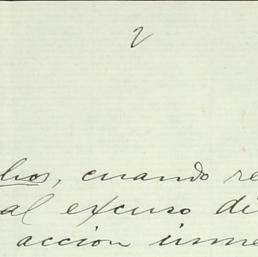 2
lhos, cuando re
al excuso di
accion inme